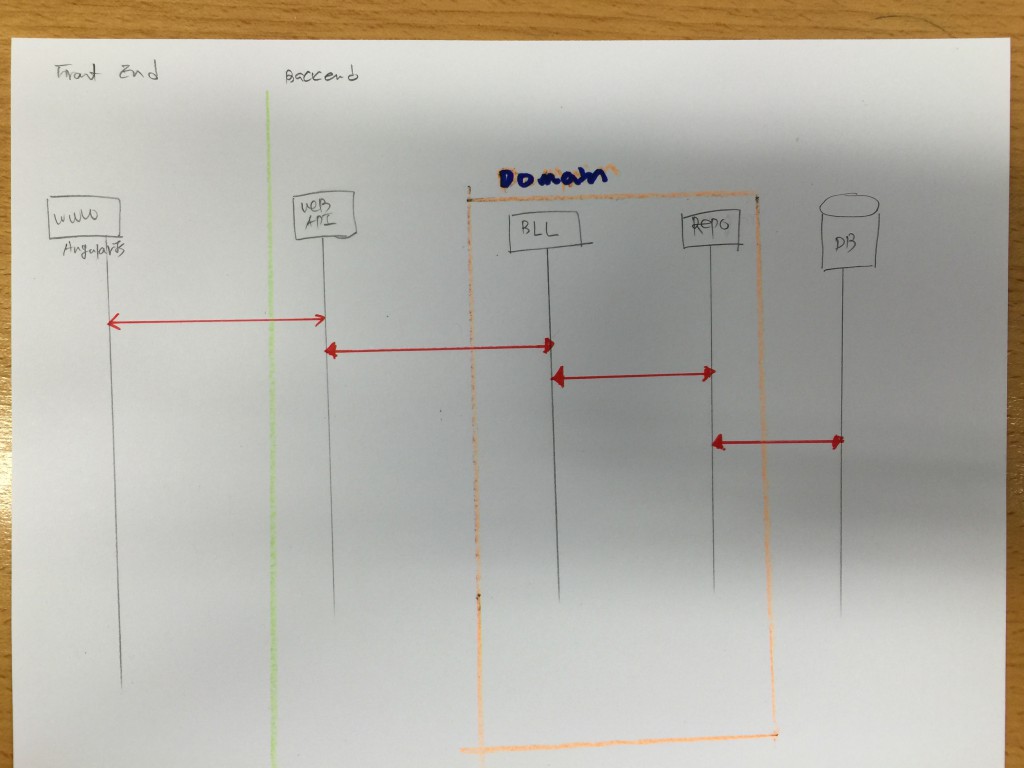 Front End
Backend
Domain
WWW
AngularJS
WEB
API
BLL
REPO
DB